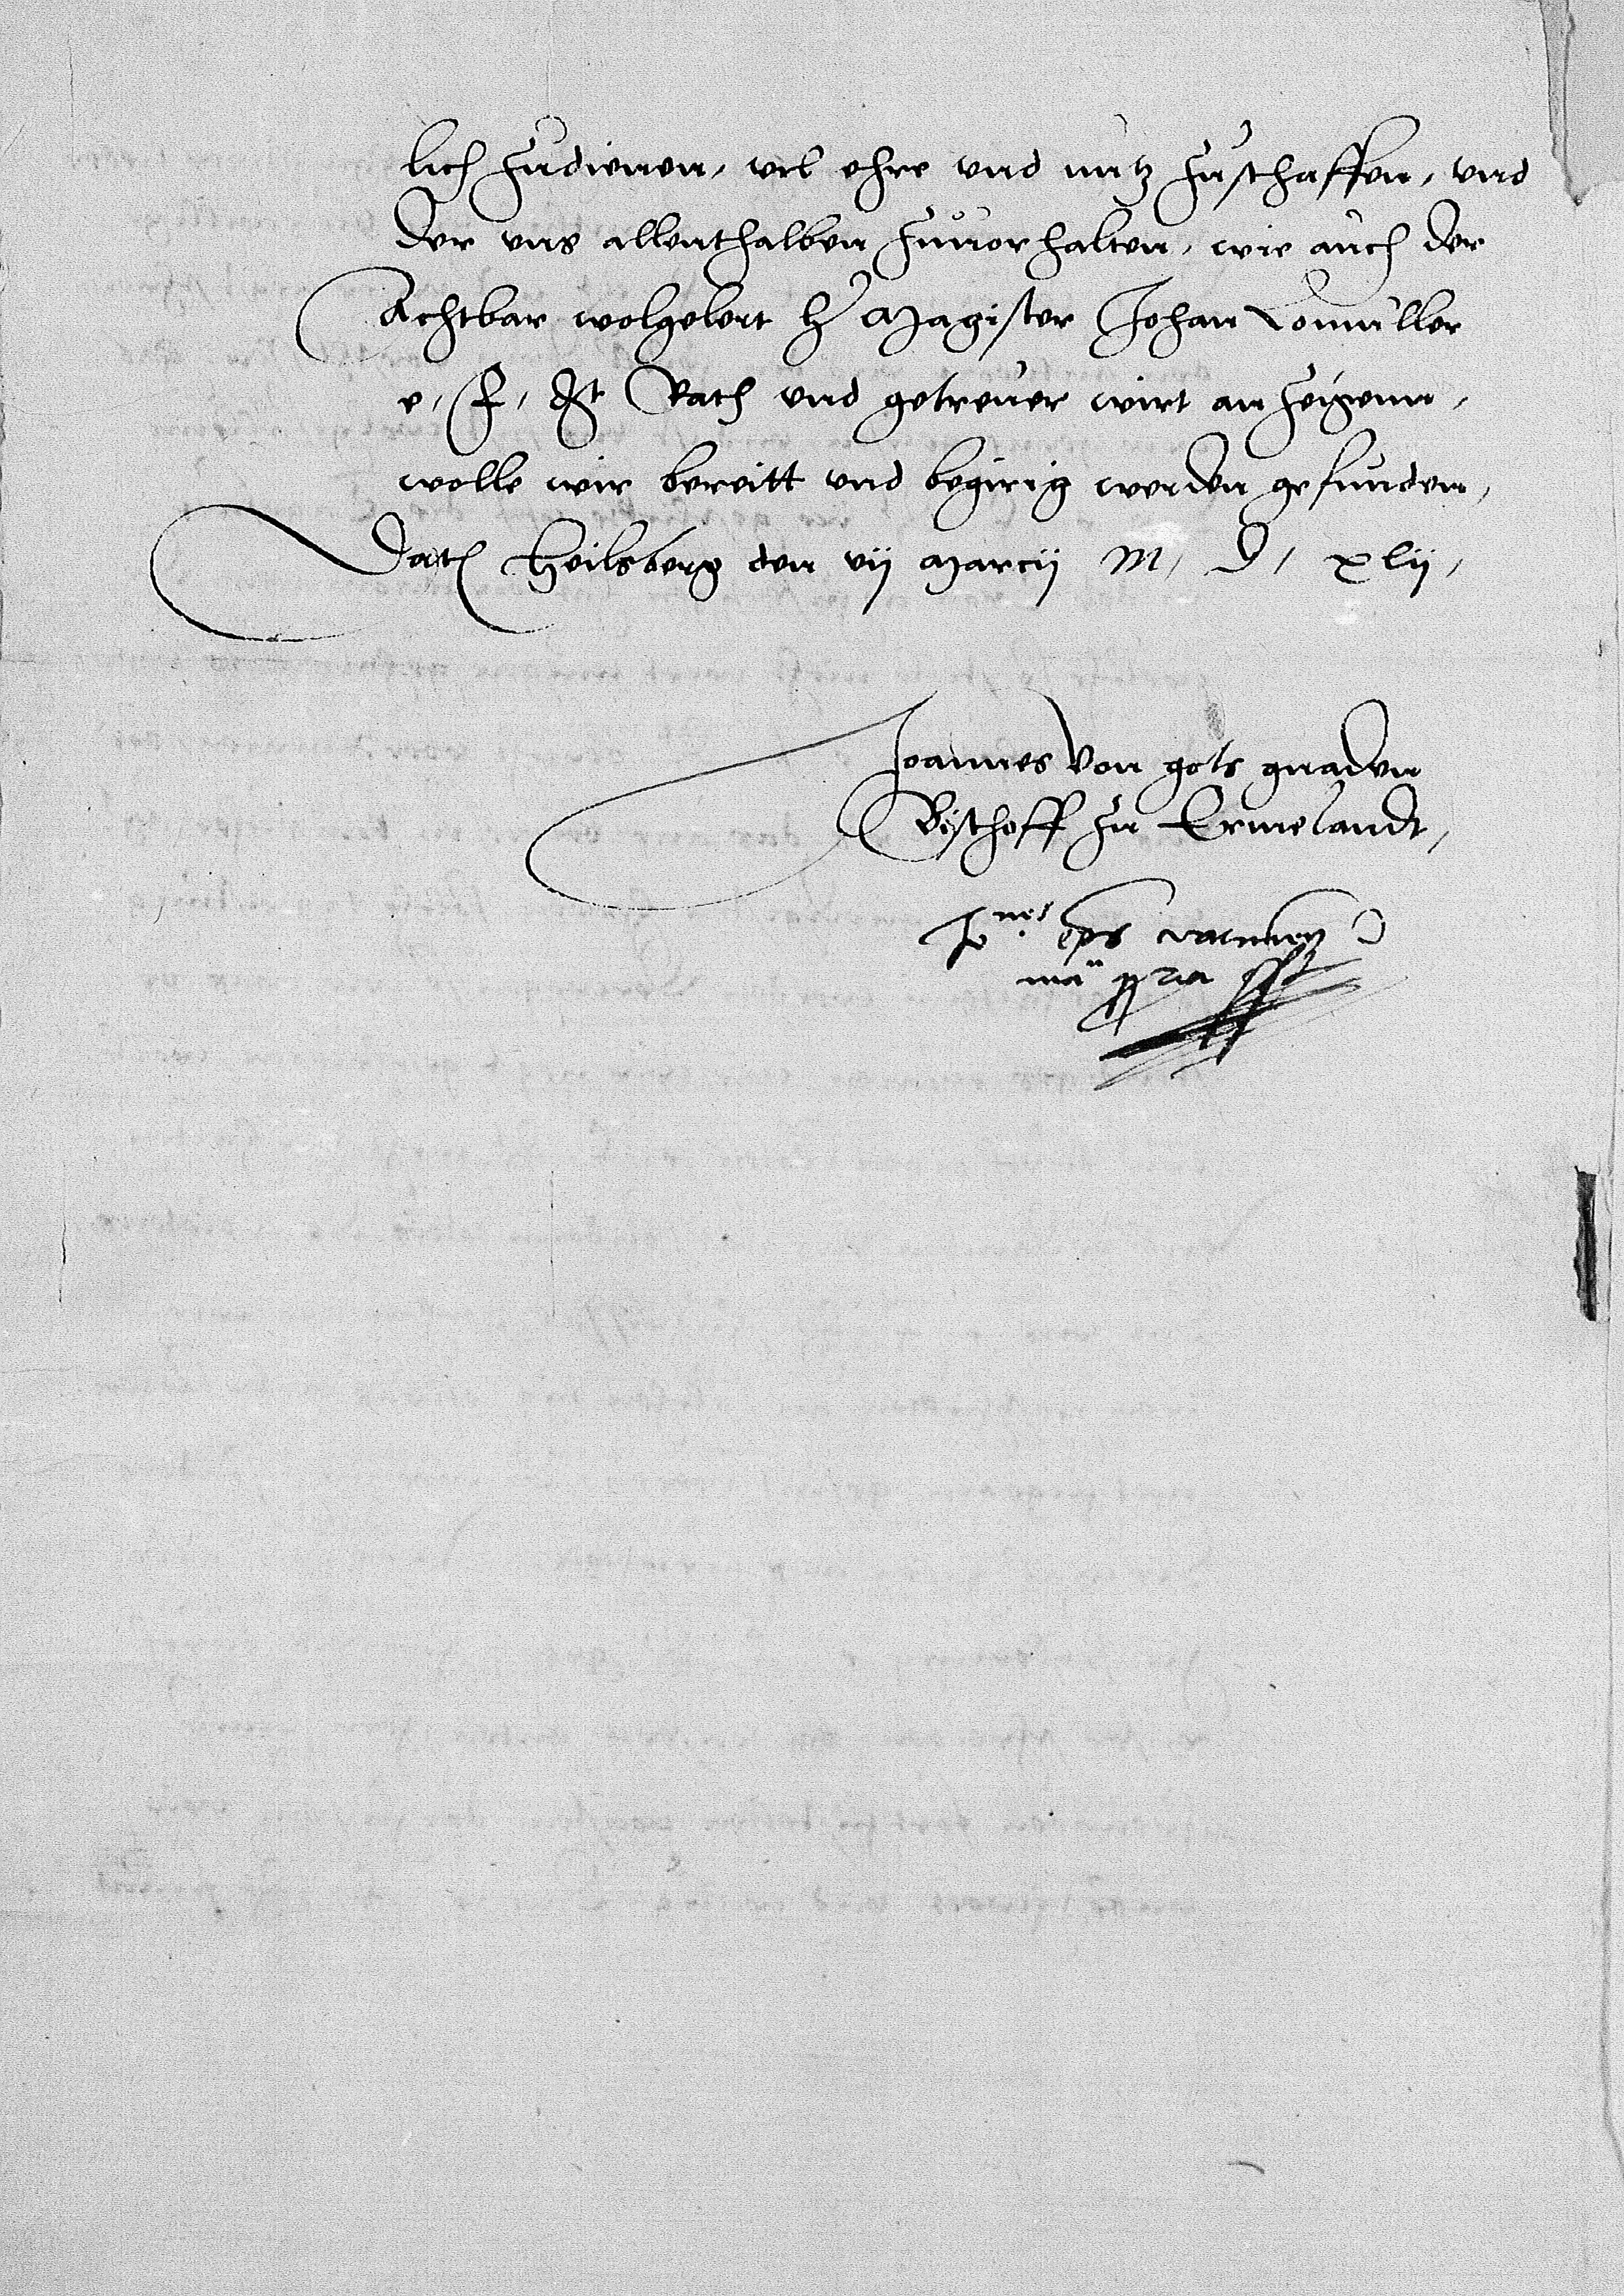 lich zudienen, vil ehre vnd nutz zuschaffen, vnd
der vns allenthalben zuuorhalten, wie auch der
Achtbar wolgelert h Magister Johan Lomuller
e, f, Rath vnd getreuer wirt anzeigenn,
wolle wir bereitt vnd begirig werden gefunden,
Dat Heilsberg den vij Marcij M, D, xlij,
Joannes von gots gnaden
Bischoff zu Ermelandt,
Jo nes eps varmien
ma ppria sst